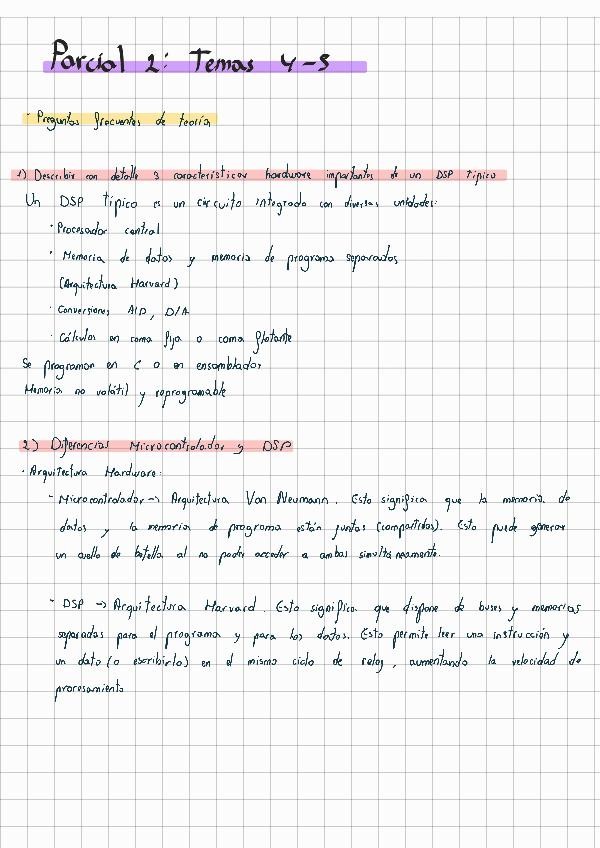 Parcial 2: Temas 4-5
· Preguntas frecuentes de teoría
1) Describir con detalle 3 características hardware importantes de un DSP típico
Un DSP típico es un circuito integrado con diversas unidades:
· Procesador central
· Memoria de datos y memoria de programa separados
(Arquitectura Harvard)
· Conversiones A/D, D/A
· Cálculos en coma fija o coma flotante
Se programan en C o en ensamblador
Memoria no volátil y reprogramable
2) Diferencias Microcontrolador y DSP
· Arquitectura Hardware:
- Microcontrolador -> Arquitectura Von Neumann. Esto significa que la memoria de
datos y la memoria de programa están juntas (compartidas). Esto puede generar
un cuello de botella al no poder acceder a ambas simultáneamente.
- DSP -> Arquitectura Harvard. Esto significa que dispone de buses y memorias
separadas para el programa y para los datos. Esto permite leer una instrucción y
un dato (o escribirlo) en el mismo ciclo de reloj, aumentando la velocidad de
procesamiento